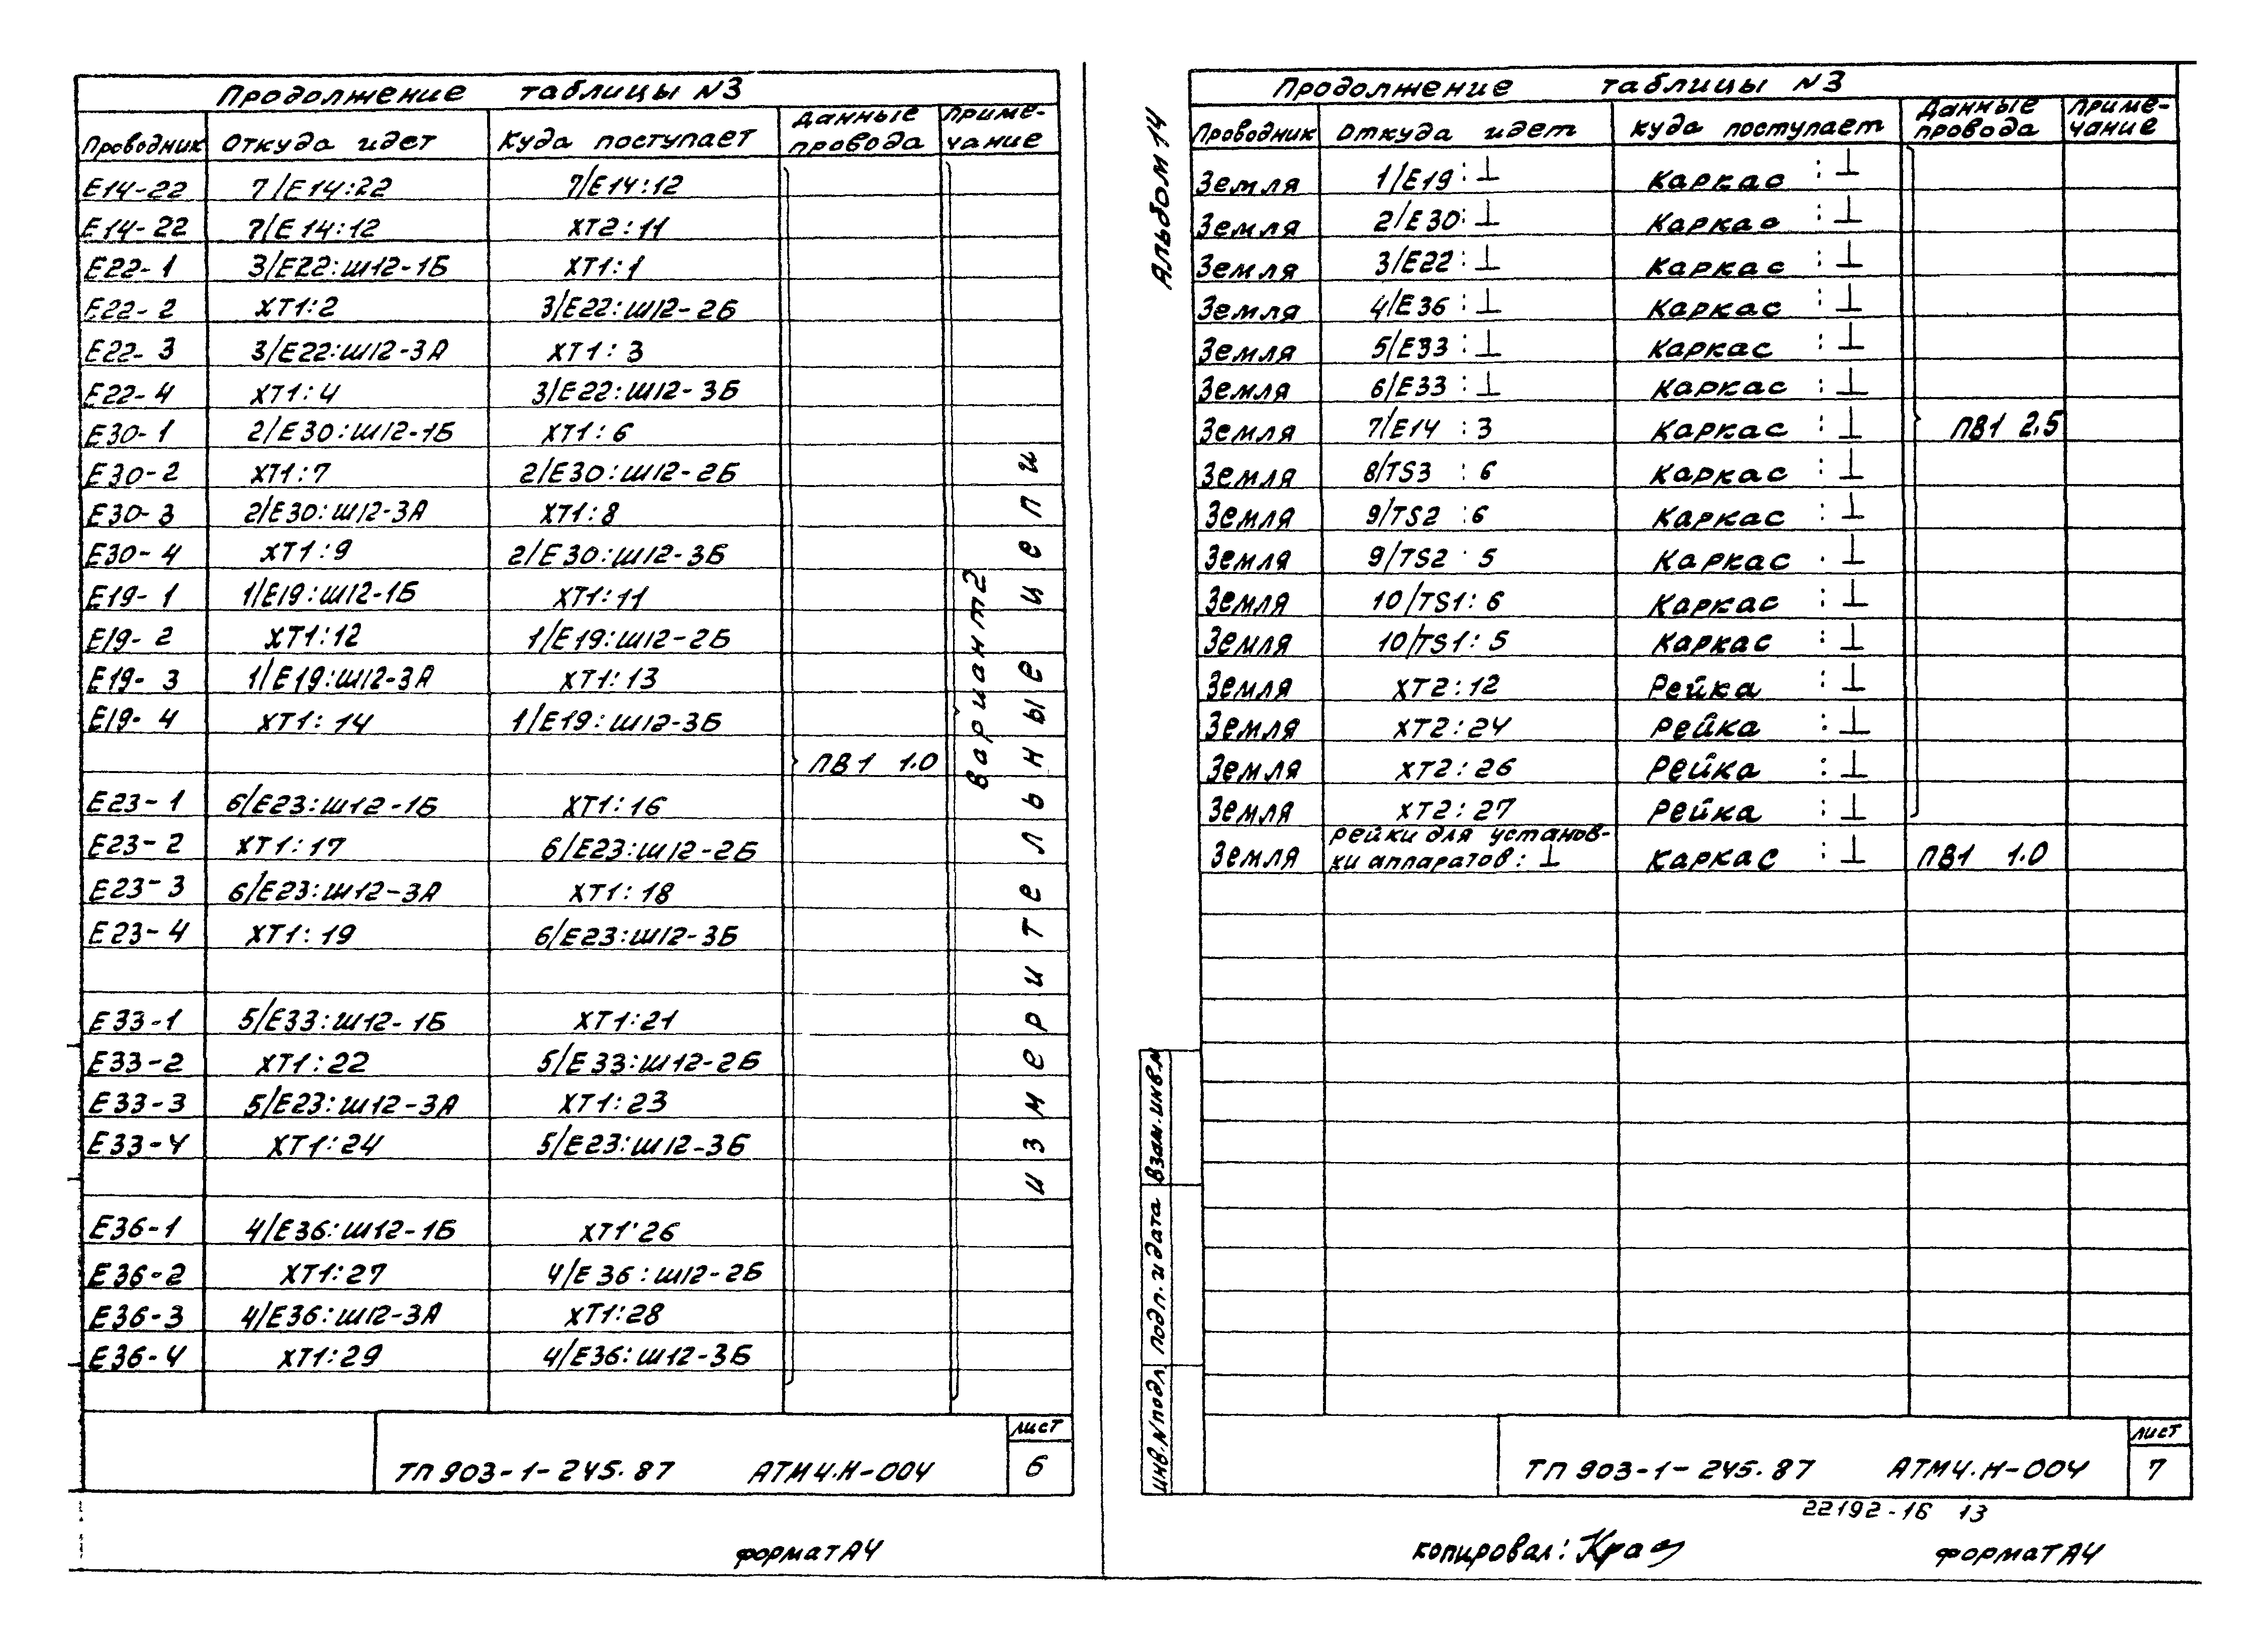 Продолжение таблицы N3
Проводник Откуда идет Куда поступает Данные провода Приме-чание
E14-22 7/E14:22 7/E14:12
E14-22 7/E14:12 XT2:11
E22-1 3/E22:Ш12-1Б XT1:1
E22-2 XT1:2 3/E22:Ш12-2Б
E22-3 3/E22:Ш12-3А XT1:3
E22-4 XT1:4 3/E22:Ш12-3Б
E30-1 2/E30:Ш12-1Б XT1:6
E30-2 XT1:7 2/E30:Ш12-2Б
E30-3 2/E30:Ш12-3А XT1:8
E30-4 XT1:9 2/E30:Ш12-3Б
E19-1 1/E19:Ш12-1Б XT1:11
E19-2 XT1:12 1/E19:Ш12-2Б
E19-3 1/E19:Ш12-3А XT1:13
E19-4 XT1:14 1/E19:Ш12-3Б
ПВ1 1.0
E23-1 6/E23:Ш12-1Б XT1:16
E23-2 XT1:17 6/E23:Ш12-2Б
E23-3 6/E23:Ш12-3А XT1:18
E23-4 XT1:19 6/E23:Ш12-3Б
E33-1 5/E33:Ш12-1Б XT1:21
E33-2 XT1:22 5/E33:Ш12-2Б
E33-3 5/E23:Ш12-3А XT1:23
E33-4 XT1:24 5/E23:Ш12-3Б
E36-1 4/E36:Ш12-1Б XT1:26
E36-2 XT1:27 4/E36:Ш12-2Б
E36-3 4/E36:Ш12-3А XT1:28
E36-4 XT1:29 4/E36:Ш12-3Б
вариант2
измерительные цепи
ТП 903-1-245.87 АТМ4.Н-004
лист
6
формат А4
Альбом 14
Продолжение таблицы N3
Проводник Откуда идет Куда поступает Данные провода Приме-чание
Земля 1/E19:⊥ Каркас :⊥
Земля 2/E30:⊥ Каркас :⊥
Земля 3/E22:⊥ Каркас :⊥
Земля 4/E36:⊥ Каркас :⊥
Земля 5/E33:⊥ Каркас :⊥
Земля 6/E33:⊥ Каркас :⊥
Земля 7/E14 :3 Каркас :⊥ ПВ1 2.5
Земля 8/TS3 :6 Каркас :⊥
Земля 9/TS2 :6 Каркас :⊥
Земля 9/TS2 : 5 Каркас :⊥
Земля 10/TS1:6 Каркас :⊥
Земля 10/TS1:5 Каркас :⊥
Земля XT2:12 Рейка :⊥
Земля XT2:24 Рейка :⊥
Земля XT2:26 Рейка :⊥
Земля XT2:27 Рейка :⊥
рейки для установ-
Земля ки аппаратов:⊥ Каркас :⊥ ПВ1 1.0
Взам.инв.N
Подп. и дата
Инв.N подл
ТП 903-1-245.87 АТМ4.Н-004
лист
7
22192-16 13
копировал: формат А4